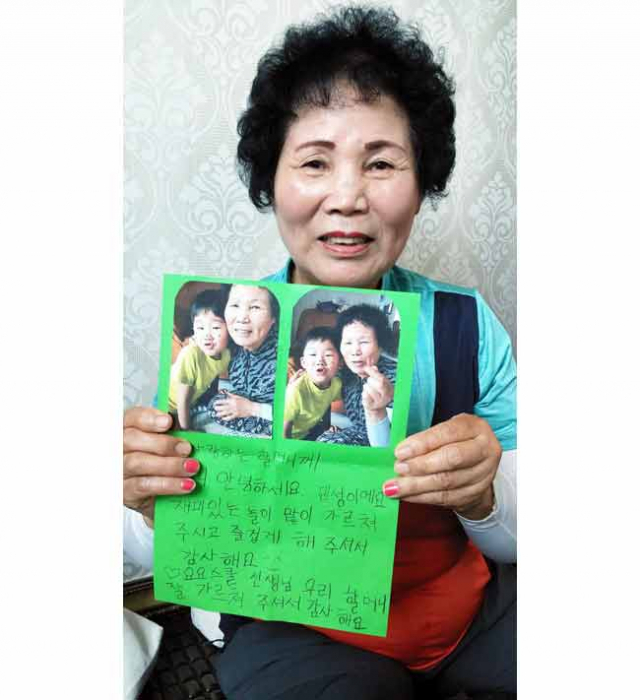 사랑하는 할머니께!
안녕하세요
재미있는 놀이 많이 가르쳐
주시고 즐겁게 해 주셔서
감사해요
♡요요스쿨 선생님 우리 할머니
잘 가르쳐 주셔서 감사
해요